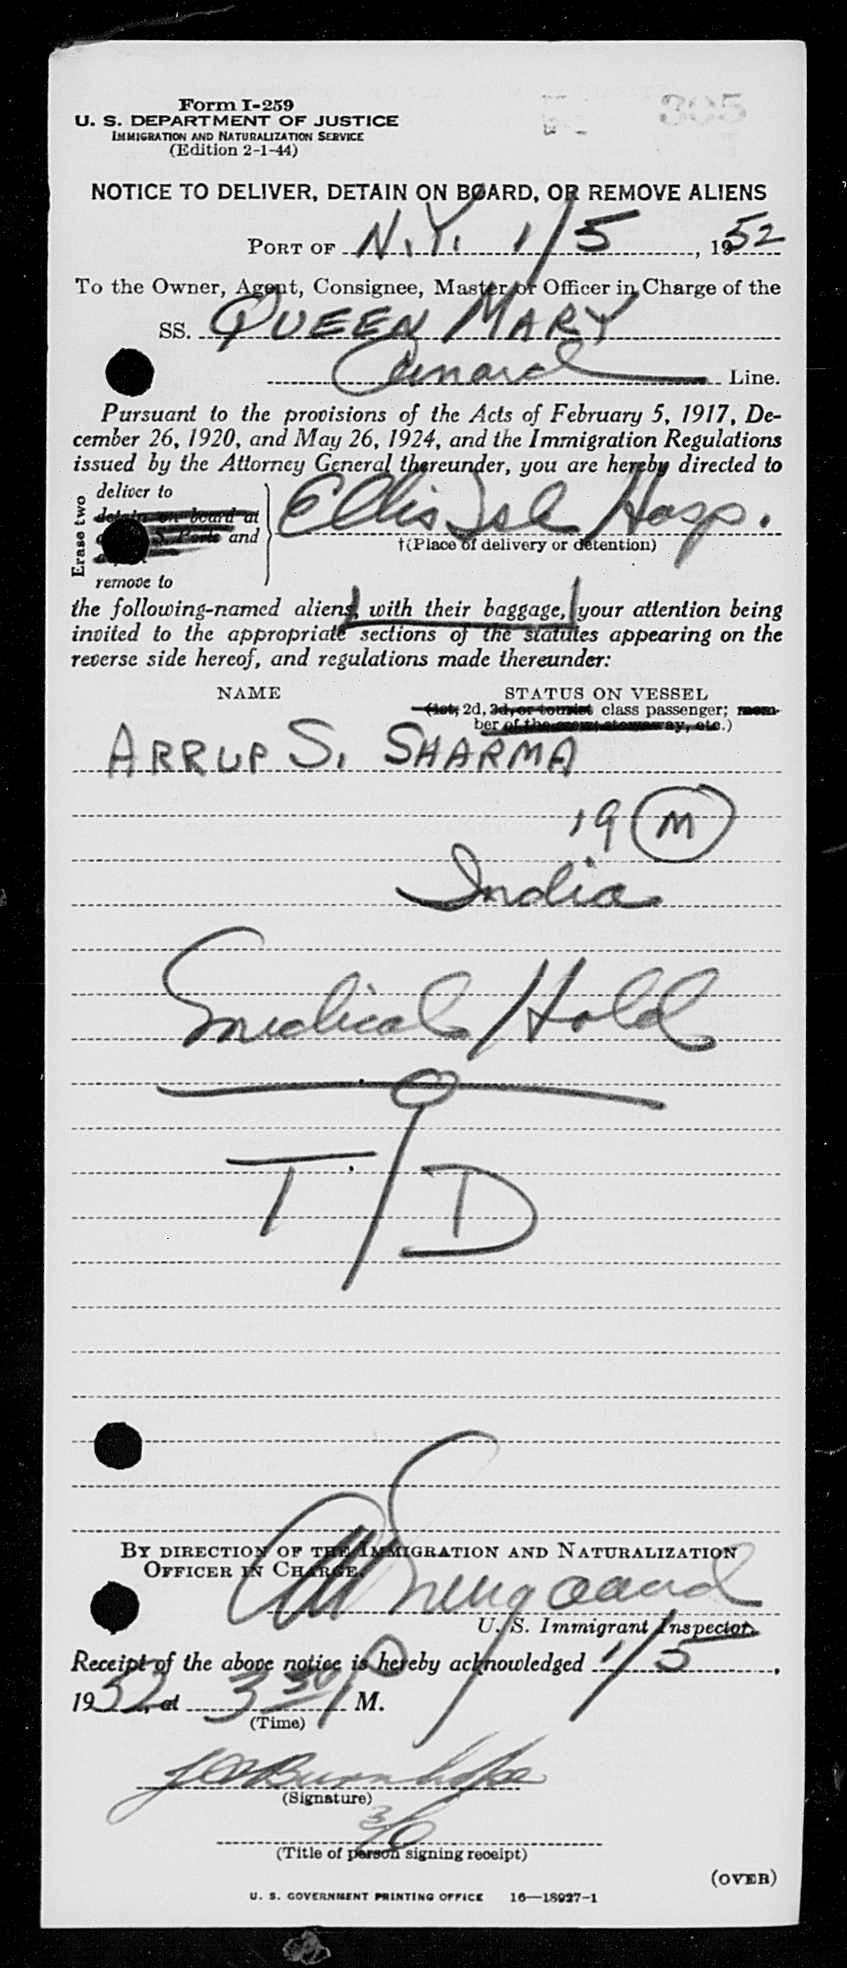 305
Form I-259
U. S. DEPARTMENT OF JUSTICE
IMMIGRATION AND NATURALIZATION SERVICE
(Edition 2-1-44)
NOTICE TO DELIVER, DETAIN ON BOARD, OR REMOVE ALIENS
PORT OF N.Y. 1/5, 1952
To the Owner, Agent, Consignee, Master or Officer in Charge of the
SS. QUEEN MARY
Cunard Line.
Pursuant to the provisions of the Acts of February 5, 1917, De-
cember 26, 1920, and May 26, 1924, and the Immigration Regulations
issued by the Attorney General thereunder, you are hereby directed to
Erase two
deliver to
detain on board at
S. Ports and
remove to
Ellis Isl Hosp.
†(Place of delivery or detention)
the following-named aliens, with their baggage, your attention being
invited to the appropriate sections of the statutes appearing on the
reverse side hereof, and regulations made thereunder:
NAME STATUS ON VESSEL
(1st, 2d, 3d, or tourist class passenger; mem-
ber of the crew, stowaway, etc.)
ARRUP S. SHARMA
19 M
India
Medical Hold
T/D
BY DIRECTION OF THE IMMIGRATION AND NATURALIZATION
OFFICER IN CHARGE.
U. S. Immigrant Inspector.
Receipt of the above notice is hereby acknowledged 1/5,
1952, at 3 30 P M.
(Time)
(Signature)
3/O
(Title of person signing receipt)
(OVER)
U. S. GOVERNMENT PRINTING OFFICE 16—18927-1